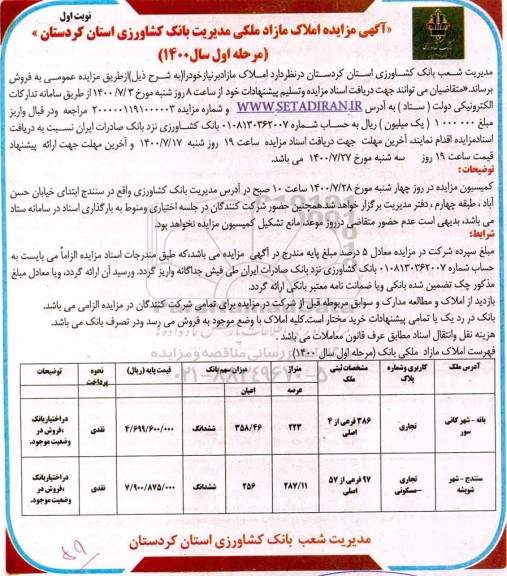 نوبت اول
«آگهی مزایده املاک مازاد ملکی مدیریت بانک کشاورزی استان کردستان»
(مرحله اول سال۱۴۰۰)
مدیریت شعب بانک کشاورزی استان کردستان درنظردارد املاک مازادبرنیازخودرا(به شرح ذیل)ازطریق مزایده عمومی به فروش
برساند.متقاضیان می توانند جهت دریافت اسناد مزایده وتسلیم پیشنهادات خود از ساعت ۸ روز شنبه مورخ ۱۴۰۰/۷/۳ از طریق سامانه تدارکات
الکترونیکی دولت ( ستاد ) به آدرس WWW.SETADIRAN.IR و شماره مزایده ۲۰۰۰۰۰۱۱۹۱۰۰۰۰۰۳ مراجعه ودر قبال واریز
مبلغ ۱۰۰۰۰۰۰ ( یک میلیون ) ریال به حساب شماره ۰۱۰۸۱۳۰۳۶۲۰۰۷ بانک کشاورزی نزد بانک صادرات ایران نسبت به دریافت
اسنادمزایده اقدام نمایند، آخرین مهلت جهت دریافت اسناد مزایده ساعت ۱۹ روز شنبه ۱۴۰۰/۷/۱۷ و آخرین مهلت جهت ارائه پیشنهاد
قیمت ساعت ۱۹ روز سه شنبه مورخ ۱۴۰۰/۷/۲۷ می باشد.
توضیحات:
کمیسیون مزایده در روز چهار شنبه مورخ ۱۴۰۰/۷/۲۸ ساعت ۱۰ صبح در آدرس مدیریت بانک کشاورزی واقع در سنندج ابتدای خیابان حسن
آباد ، طبقه چهارم ، دفتر مدیریت برگزار خواهد شد.همچنین حضور شرکت کنندگان در جلسه اختیاری ومنوط به بارگذاری اسناد در سامانه ستاد
می باشد، بدیهی است عدم حضور متقاضی درروز موعد، مانع تشکیل کمیسیون مزایده نخواهد بود.
شرایط:
مبلغ سپرده شرکت در مزایده معادل ۵ درصد مبلغ پایه مندرج در آگهی مزایده می باشد،که طبق مندرجات اسناد مزایده الزاماً می بایست به
حساب شماره ۰۱۰۸۱۳۰۳۶۲۰۰۷ بانک کشاورزی نزد بانک صادرات ایران طی فیش جداگانه واریز گردد، ورسید آن ارائه گردد، ویا معادل مبلغ
مذکور چک تضمین شده بانکی ویا ضمانت نامه معتبر بانکی ارائه گردد.
بازدید از املاک و مطالعه مدارک و سوابق مربوطه قبل از شرکت در مزایده برای تمامی شرکت کنندگان در مزایده الزامی می باشد.
بانک در رد یک یا تمامی پیشنهادات خرید مختار است.کلیه املاک با وضع موجود به فروش می رسد ودر تصرف بانک می باشد.
هزینه نقل وانتقال اسناد مطابق عرف قانون معاملات می باشد .
فهرست املاک مازاد ملکی بانک (مرحله اول سال ۱۴۰۰)
آدرس ملک کاربری وشماره پلاک مشخصات ثبتی ملک متراژ میزان سهم بانک قیمت پایه (ریال) نحوه پرداخت توضیحات
عرصه اعیان
بانه - شهر کانی سور تجاری ۳۸۶ فرعی از ۴ اصلی ۲۲۳ ۳۵۸/۴۶ ششدانگ ۴/۶۹۹/۶۰۰/۰۰۰ نقدی دراختیاربانک ،فروش در وضعیت موجود.
سنندج - شهر شویشه تجاری -مسکونی ۹۷ فرعی از ۵۷ اصلی ۲۸۷/۱۱ ۲۵۶ ششدانگ ۷/۹۰۰/۸۷۵/۰۰۰ نقدی دراختیاربانک ،فروش در وضعیت موجود.
مدیریت شعب بانک کشاورزی استان کردستان